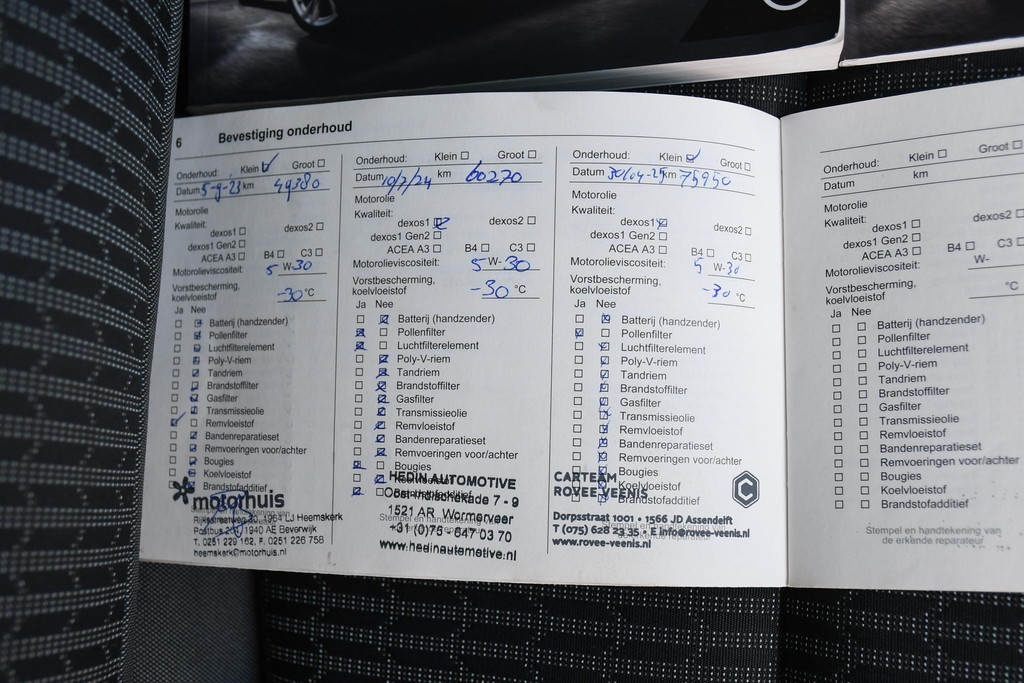 6 Bevestiging onderhoud
Onderhoud: Klein Groot
Datum 5-9-23 km 49380
Motorolie
Kwaliteit:
dexos1 dexos2
dexos1 Gen2
ACEA A3 B4 C3
Motorolieviscositeit: 5 W-30
Vorstbescherming,
koelvloeistof -30 °C
Ja Nee
Batterij (handzender)
Pollenfilter
Luchtfilterelement
Poly-V-riem
Tandriem
Brandstoffilter
Gasfilter
Transmissieolie
Remvloeistof
Bandenreparatieset
Remvoeringen voor/achter
Bougies
Koelvloeistof
Brandstofadditief
motorhuis
1964 LJ Heemskerk
1940 AE Beverwijk
T. 0251 229 162, F. 0251 226 758
heemskerk@motorhuis.nl
Onderhoud: Klein Groot
Datum 10/7/24 km 60270
Motorolie
Kwaliteit:
dexos1 dexos2
dexos1 Gen2
ACEA A3 B4 C3
Motorolieviscositeit: 5 W-30
Vorstbescherming,
koelvloeistof -30 °C
Ja Nee
Batterij (handzender)
Pollenfilter
Luchtfilterelement
Poly-V-riem
Tandriem
Brandstoffilter
Gasfilter
Transmissieolie
Remvloeistof
Bandenreparatieset
Remvoeringen voor/achter
Bougies
HEDIN AUTOMOTIVE
Oost-Indischekade 7 - 9
1521 AR Wormerveer
+31 (0)75 - 647 03 70
www.hedinautomotive.nl
Onderhoud: Klein Groot
Datum 30/04-25 km 75950
Motorolie
Kwaliteit:
dexos1 dexos2
dexos1 Gen2
ACEA A3 B4 C3
Motorolieviscositeit: 5 W-30
Vorstbescherming,
koelvloeistof -30 °C
Ja Nee
Batterij (handzender)
Pollenfilter
Luchtfilterelement
Poly-V-riem
Tandriem
Brandstoffilter
Gasfilter
Transmissieolie
Remvloeistof
Bandenreparatieset
Remvoeringen voor/achter
Bougies
Koelvloeistof
Brandstofadditief
CARTEAM
ROVEE-VEENIS
C
Dorpsstraat 1001 • 1566 JD Assendelft
T (075) 628 23 35 • E info@rovee-veenis.nl
www.rovee-veenis.nl
Onderhoud: Klein Groot
Datum km
Motorolie
Kwaliteit:
dexos1 dexos2
dexos1 Gen2
ACEA A3 B4 C3
Motorolieviscositeit: W-
Vorstbescherming,
koelvloeistof °C
Ja Nee
Batterij (handzender)
Pollenfilter
Luchtfilterelement
Poly-V-riem
Tandriem
Brandstoffilter
Gasfilter
Transmissieolie
Remvloeistof
Bandenreparatieset
Remvoeringen voor/achter
Bougies
Koelvloeistof
Brandstofadditief
Stempel en handtekening van
de erkende reparateur